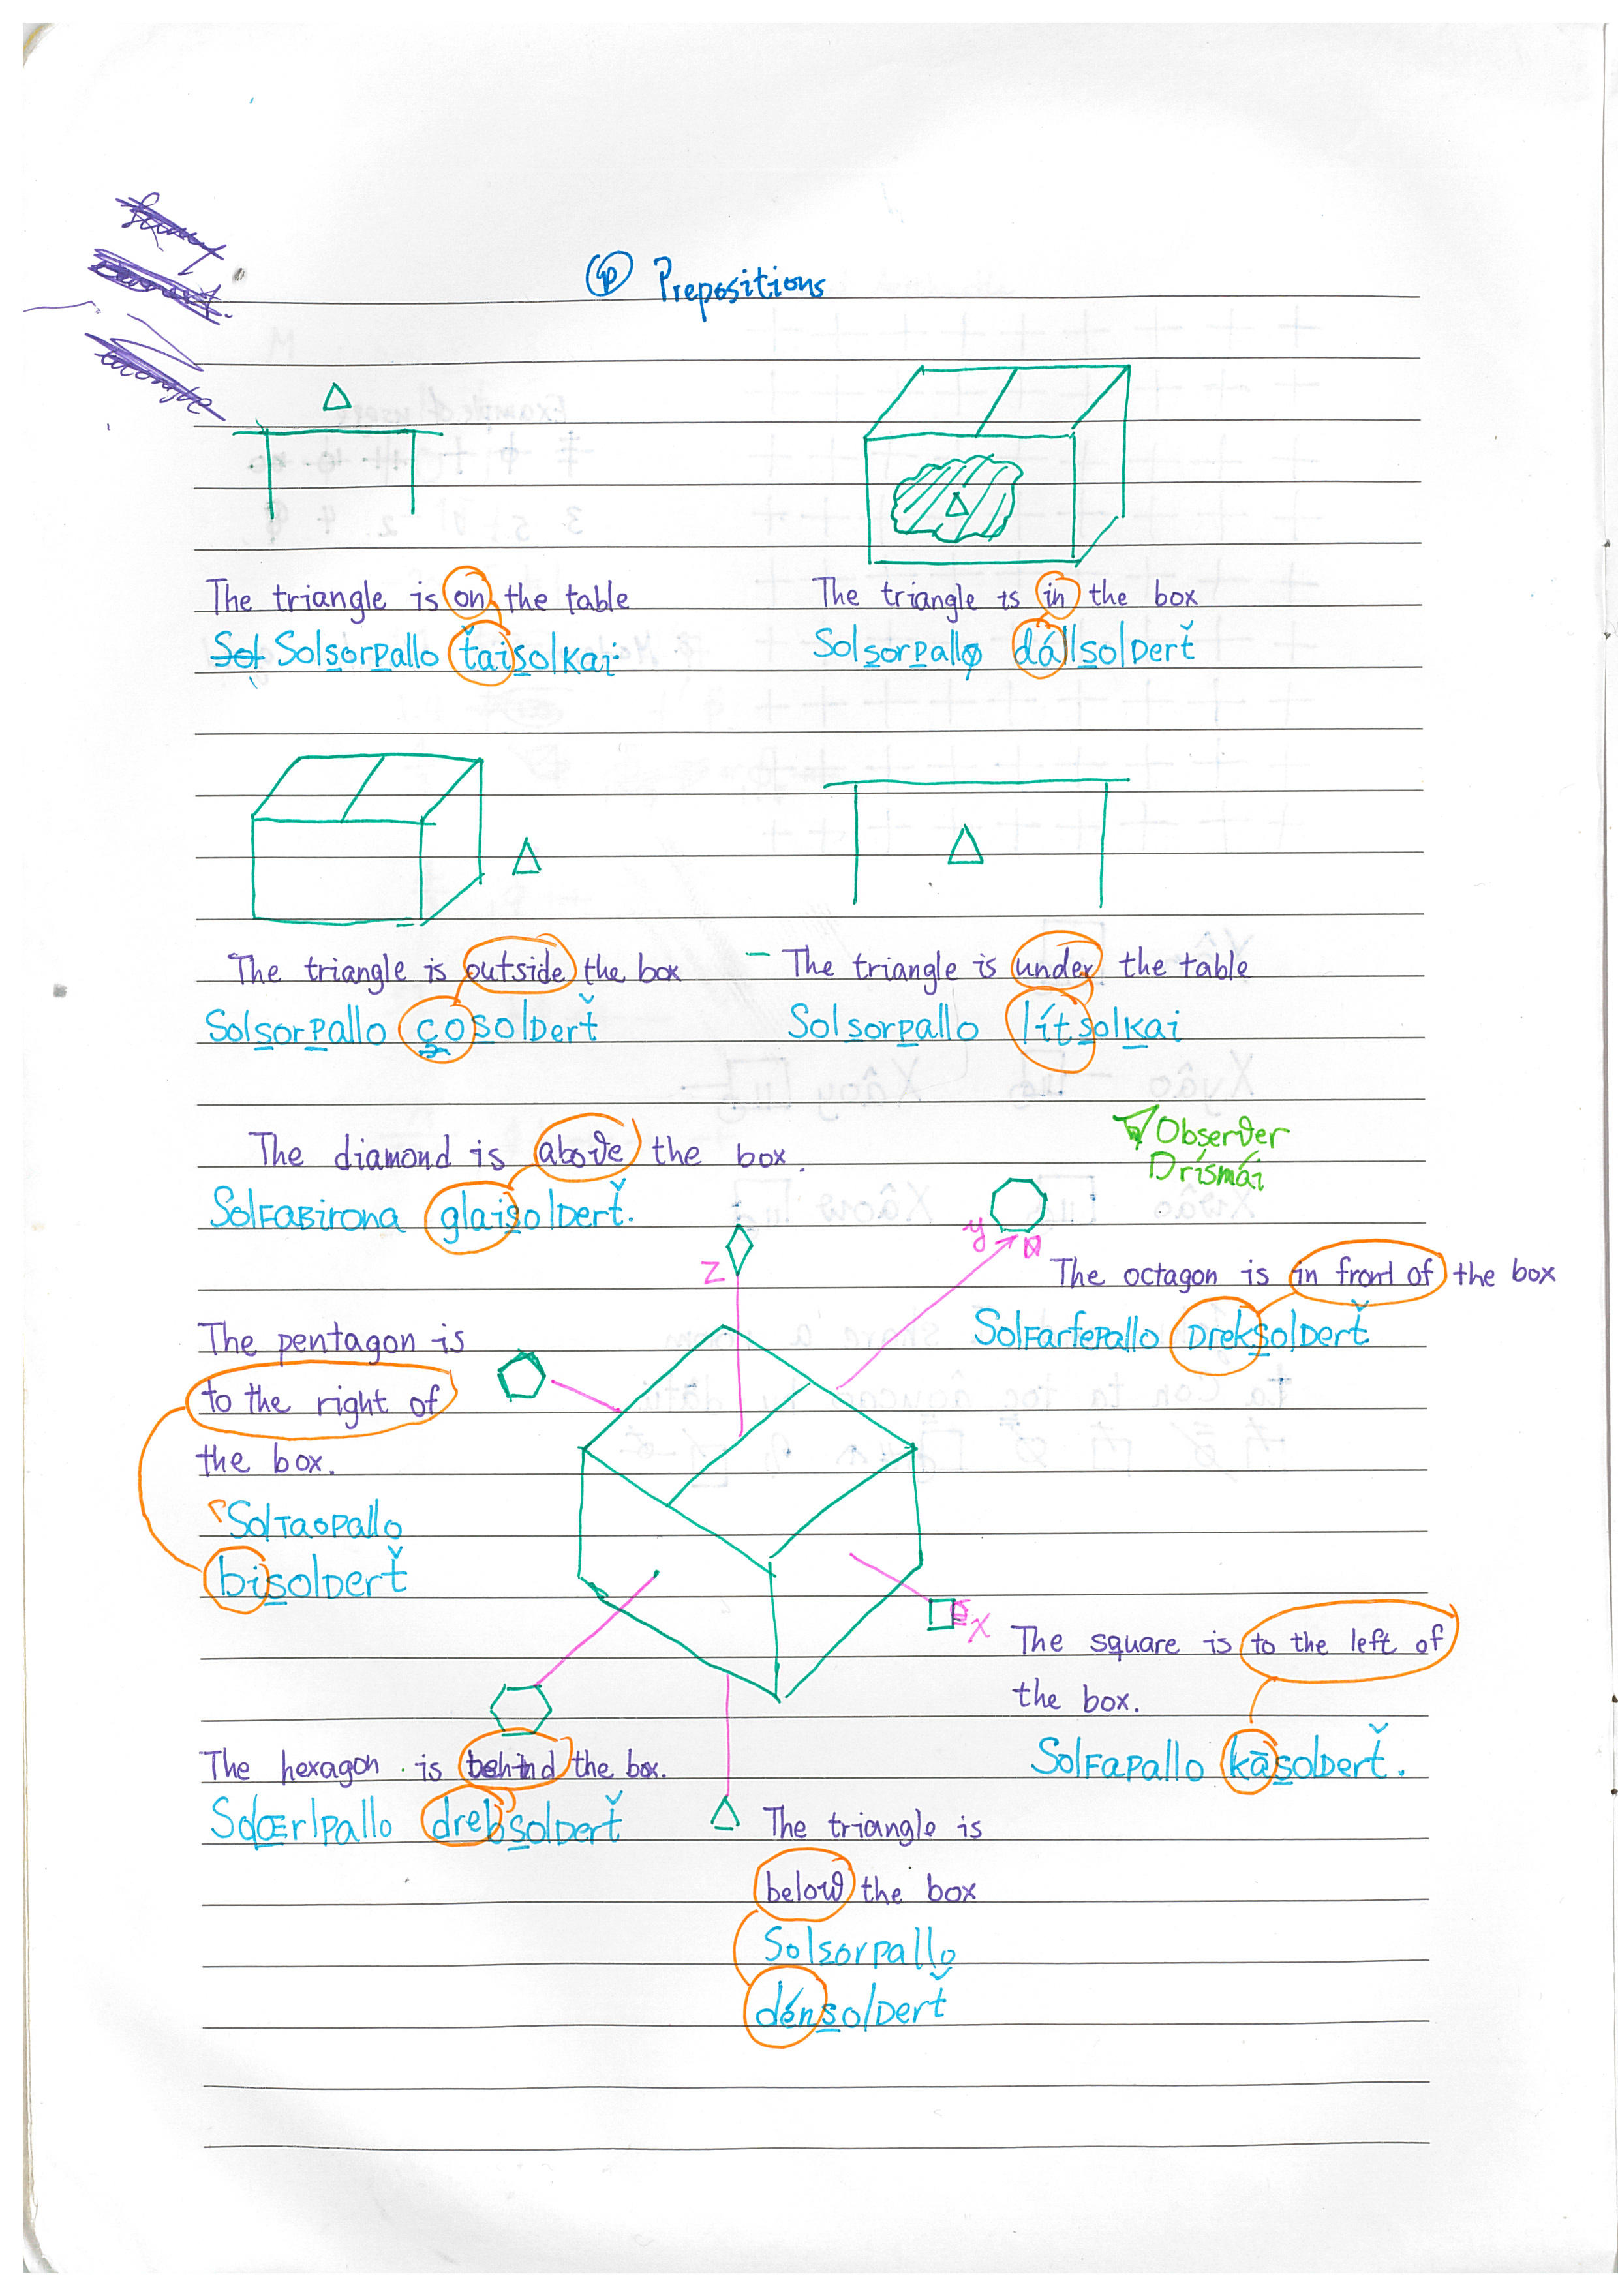 Prepositions
The triangle is on the table
Sol Solsorpallo ťaisolkai
The triangle is in the box
Solsorpallo dállsolDerť
The triangle is outside the box
Solsorpallo çosolDerť
- The triangle is under the table
Solsorpallo lítsolkai
The diamond is above the box.
SolFaBirona glaisolDerť.
Observer
Drísmái
Z
y
The octagon is in front of the box
SolFarfePallo DreksolDerť
The pentagon is
to the right of
the box.
SolTaoPallo
bisolDerť
X
The square is to the left of
the box.
SolFaPallo kāsolDerť.
The hexagon is behind the box.
SolŒrlpallo drebsolDerť
The triangle is
below the box
Solsorpallo
dénsolDerť